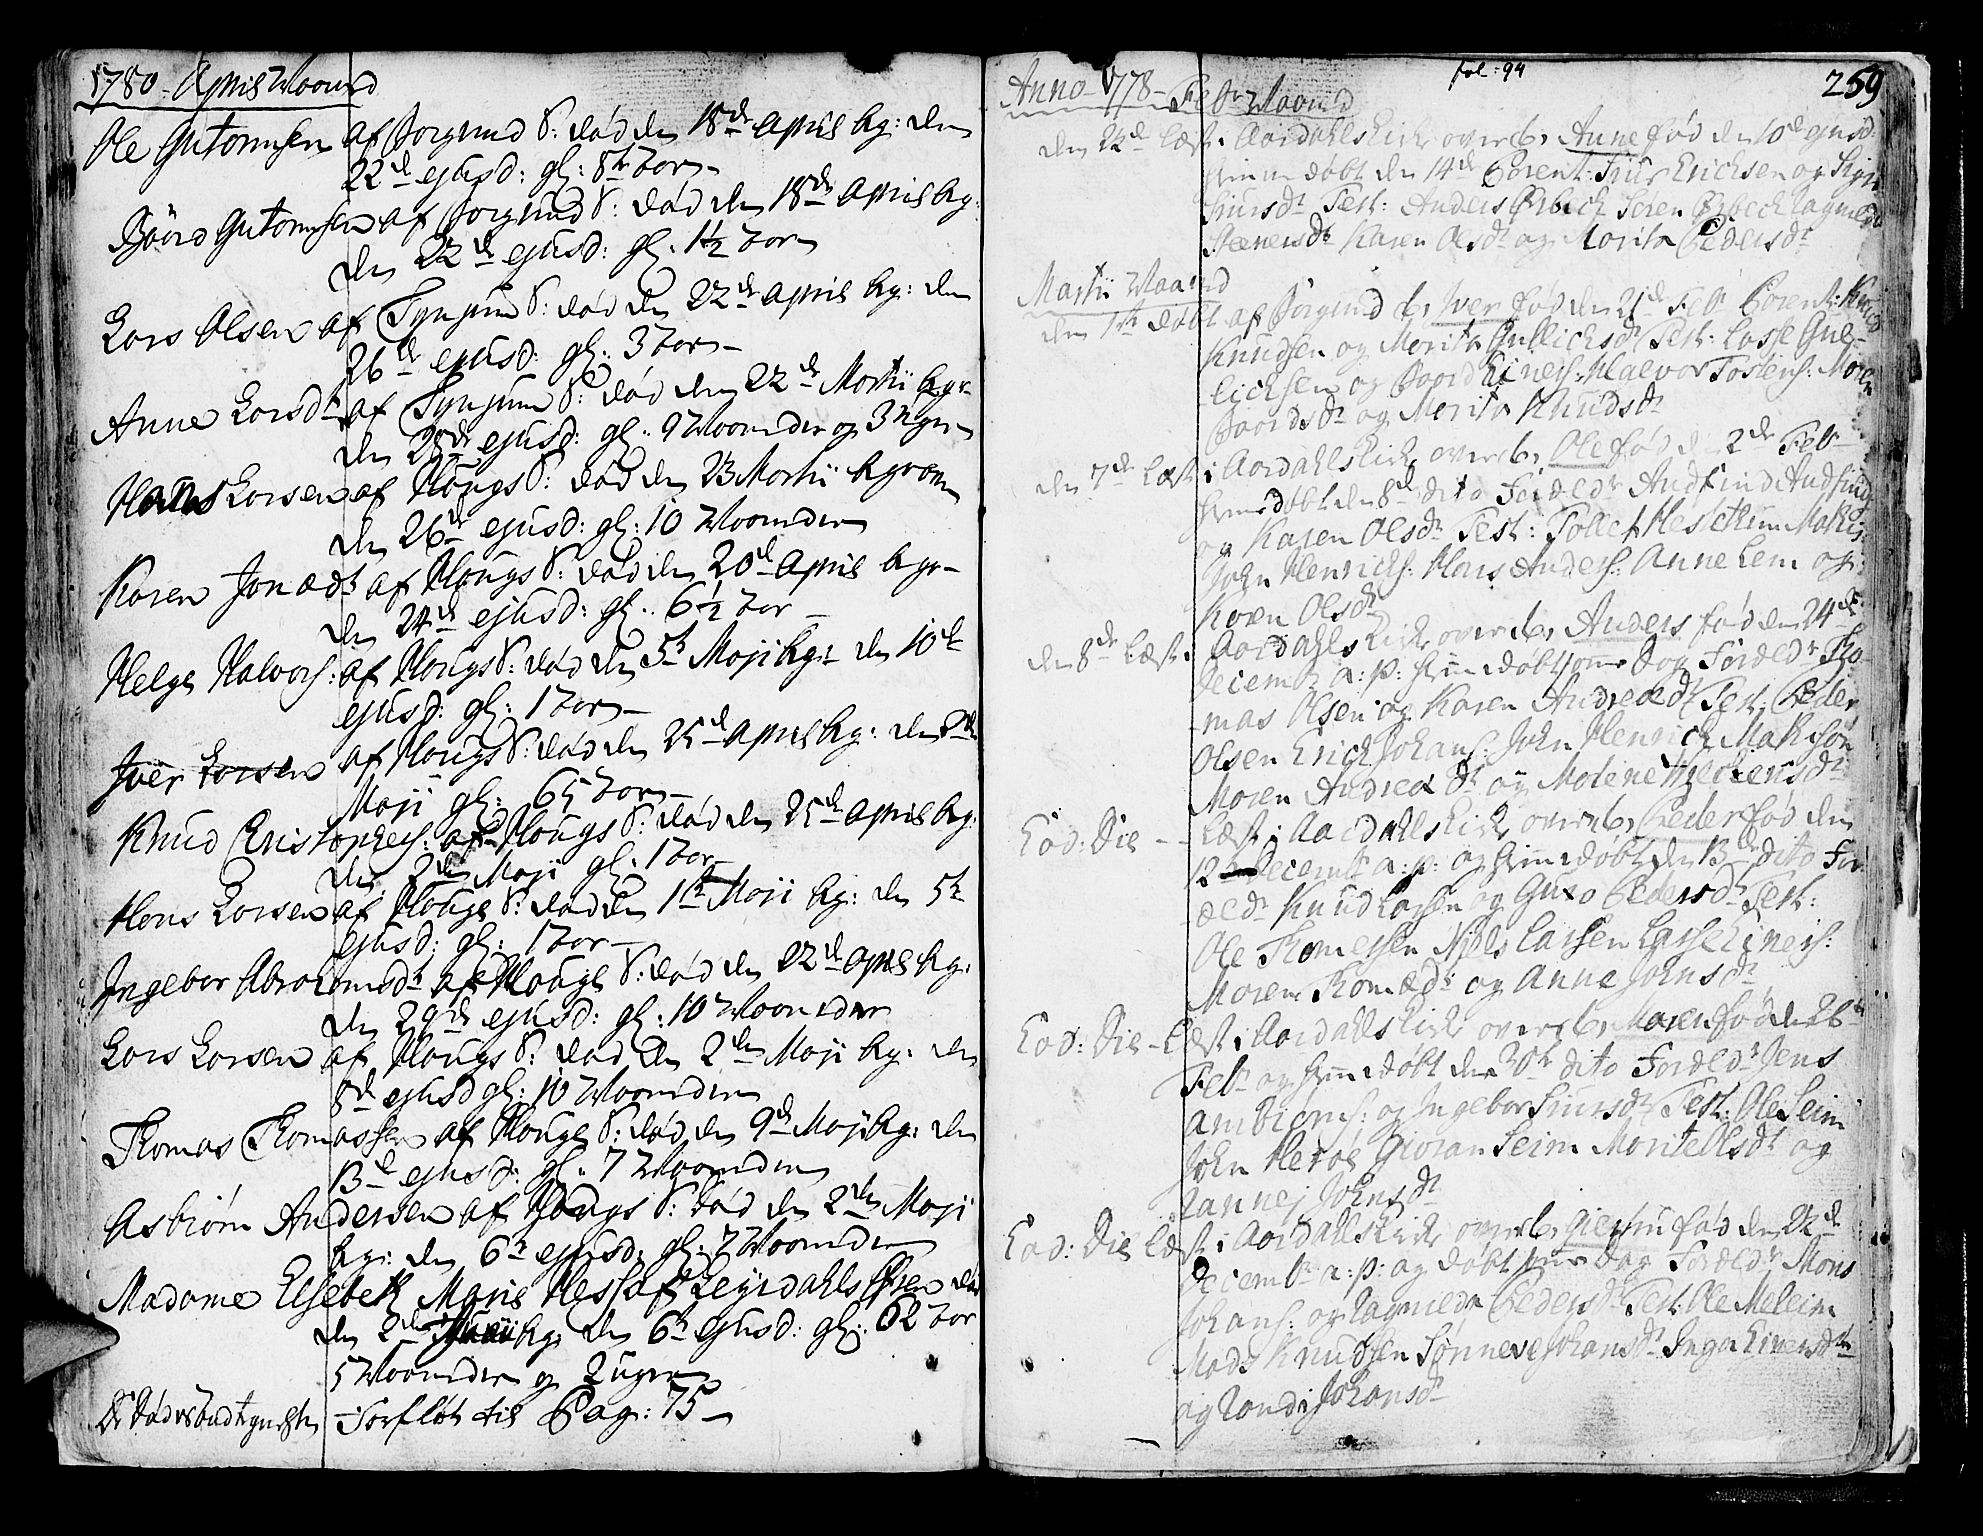 1780 - Aprils Maaned
Ole Gutormsen af Borgund S: død den 18de April bg: den
22de ejusd: gl: 8te Aar -
Baard Gutormsen af Borgund S: død den 18de April bg:
den 22de ejusd: gl: 1½ Aar
Lars Olsen af Tynjum S: død den 22de April bg: den
26de ejusd: gl: 3 Aar -
Anne Larsdr af Tynjum S: død den 22de Martii bgr-
den 28de ejusd: gl: 9 Maaneder og 3 Uger
Hans Larsen af Hougs S: død den 23 Martii
den 26de ejusd: gl: 10 Maaneder
Karen Jonædr af Hougs S: død den 20de April bgr-
den 24de ejusd: gl: 6½ Aar -
Helge Halvors: af Hougs S: død den 5te Maji bg: den 10de
ejusd: gl: 1 Aar -
Iver Larsen af Hougs S: død den 25de April bg: den 2den
Maji gl: 65 Aar -
Knud Christophers: af Hougs S: død den 25de April bg:
den 2den Maji gl: 1 Aar
Hans Larsen af Houge S: død den 1te Maji bg: den 5te
ejusd: gl: 1 Aar -
Ingebor Abrahamsdr af Houge S: død den 22de April bg:
den 29de ejusd: gl: 10 Maaneder
Lars Larsen af Hougs S: død den 2den Maji bg: den
8de ejusd gl: 10 Maaneder
Thomas Thomassen af Hougs S: død den 9de Maji bg: den
13de ejusd: gl: 7 Maaneder
Asbiørn Andersen af Hougs S: død den 2den Maji
bg: den 6te ejusd: gl: 7 Maaneder
Madame Elsebeth Marie Hess af Leyrdahls Øren død
den 2den bg: den 6te ejusd: gl: 62 Aar
5 Maaneder og 2 Uger
- Forfløt til Pag: 75 -
fol: 94
259
Anno 1778 - Febr: Maaned
den 22de Læst i Aardahls Kirke over b: Anne fød den 10de ejusd:
hiemedøbt den 14de Parent: Siur Ericksen og
Siursdr Test: Anders Ørbeck Søren Ørbeck Ragnilda
Steenersdr Karen Olsdr og Marita Pedersdr
Martii Maaned
den 1te døbt af Borgund b: Iver fød den 21de Febr Parent: Knud
Knudsen og Marita Gullichsdr Test: Lasse Gul-
lichsen og Baard Einers: Halvor Tostens: Maren
Baardsdr og Marita Knudsdr
den 7de Læst i Aardahls Kirke over b: Ole fød d: 2de Febr
hiemedøbt den 8de dito Forældr Andfind Andfinds
og Karen Olsdr Test: Tollef Hesethun
John Henrichs: Hans Anders: Anne Lem og
Karen Olsdr
den 8de Læst i Aardahls Kirke over b: Anders fød den 24de
Decembr a: p: hiemedøbt samme Dag Forældr Tho-
mas Olsen og Karen Andreædr Test: Peder
Olsen Erick Johans: John Henrich
Maren Andreædr og Malene
Eod: Die - - Læst i Aardahls Kirke over b: Peder fød den
12 Decembr a: p: og hiemedøbt den 13de dito For-
ældr Knud Larsen og Guro Pedersdr Test:
Ole Thomesen Niels Larsen Lasse Einers:
Maren Thomædr og Anna Johnsdr
Eod: Die - Læst i Aardahls Kirke over b: Maren fød
Febr og hiemedøbt den dito Forældr Jens
Ambiørns: og Ingebor Siursdr Test: Ole Seim
John Herøe Giøran Seim Marite Elsdr og
Johnsdr
Eod: Die Læst i Aardahls Kirke over b: fød den 22de
Decembr a: p: og døbt Dag Forældr Mons
Johans: og Ragnilda Pedersdr Test: Ole Meleim
Mads Knudsen Sønneve Johansdr Inga Einersdr
og Randi Johansdr